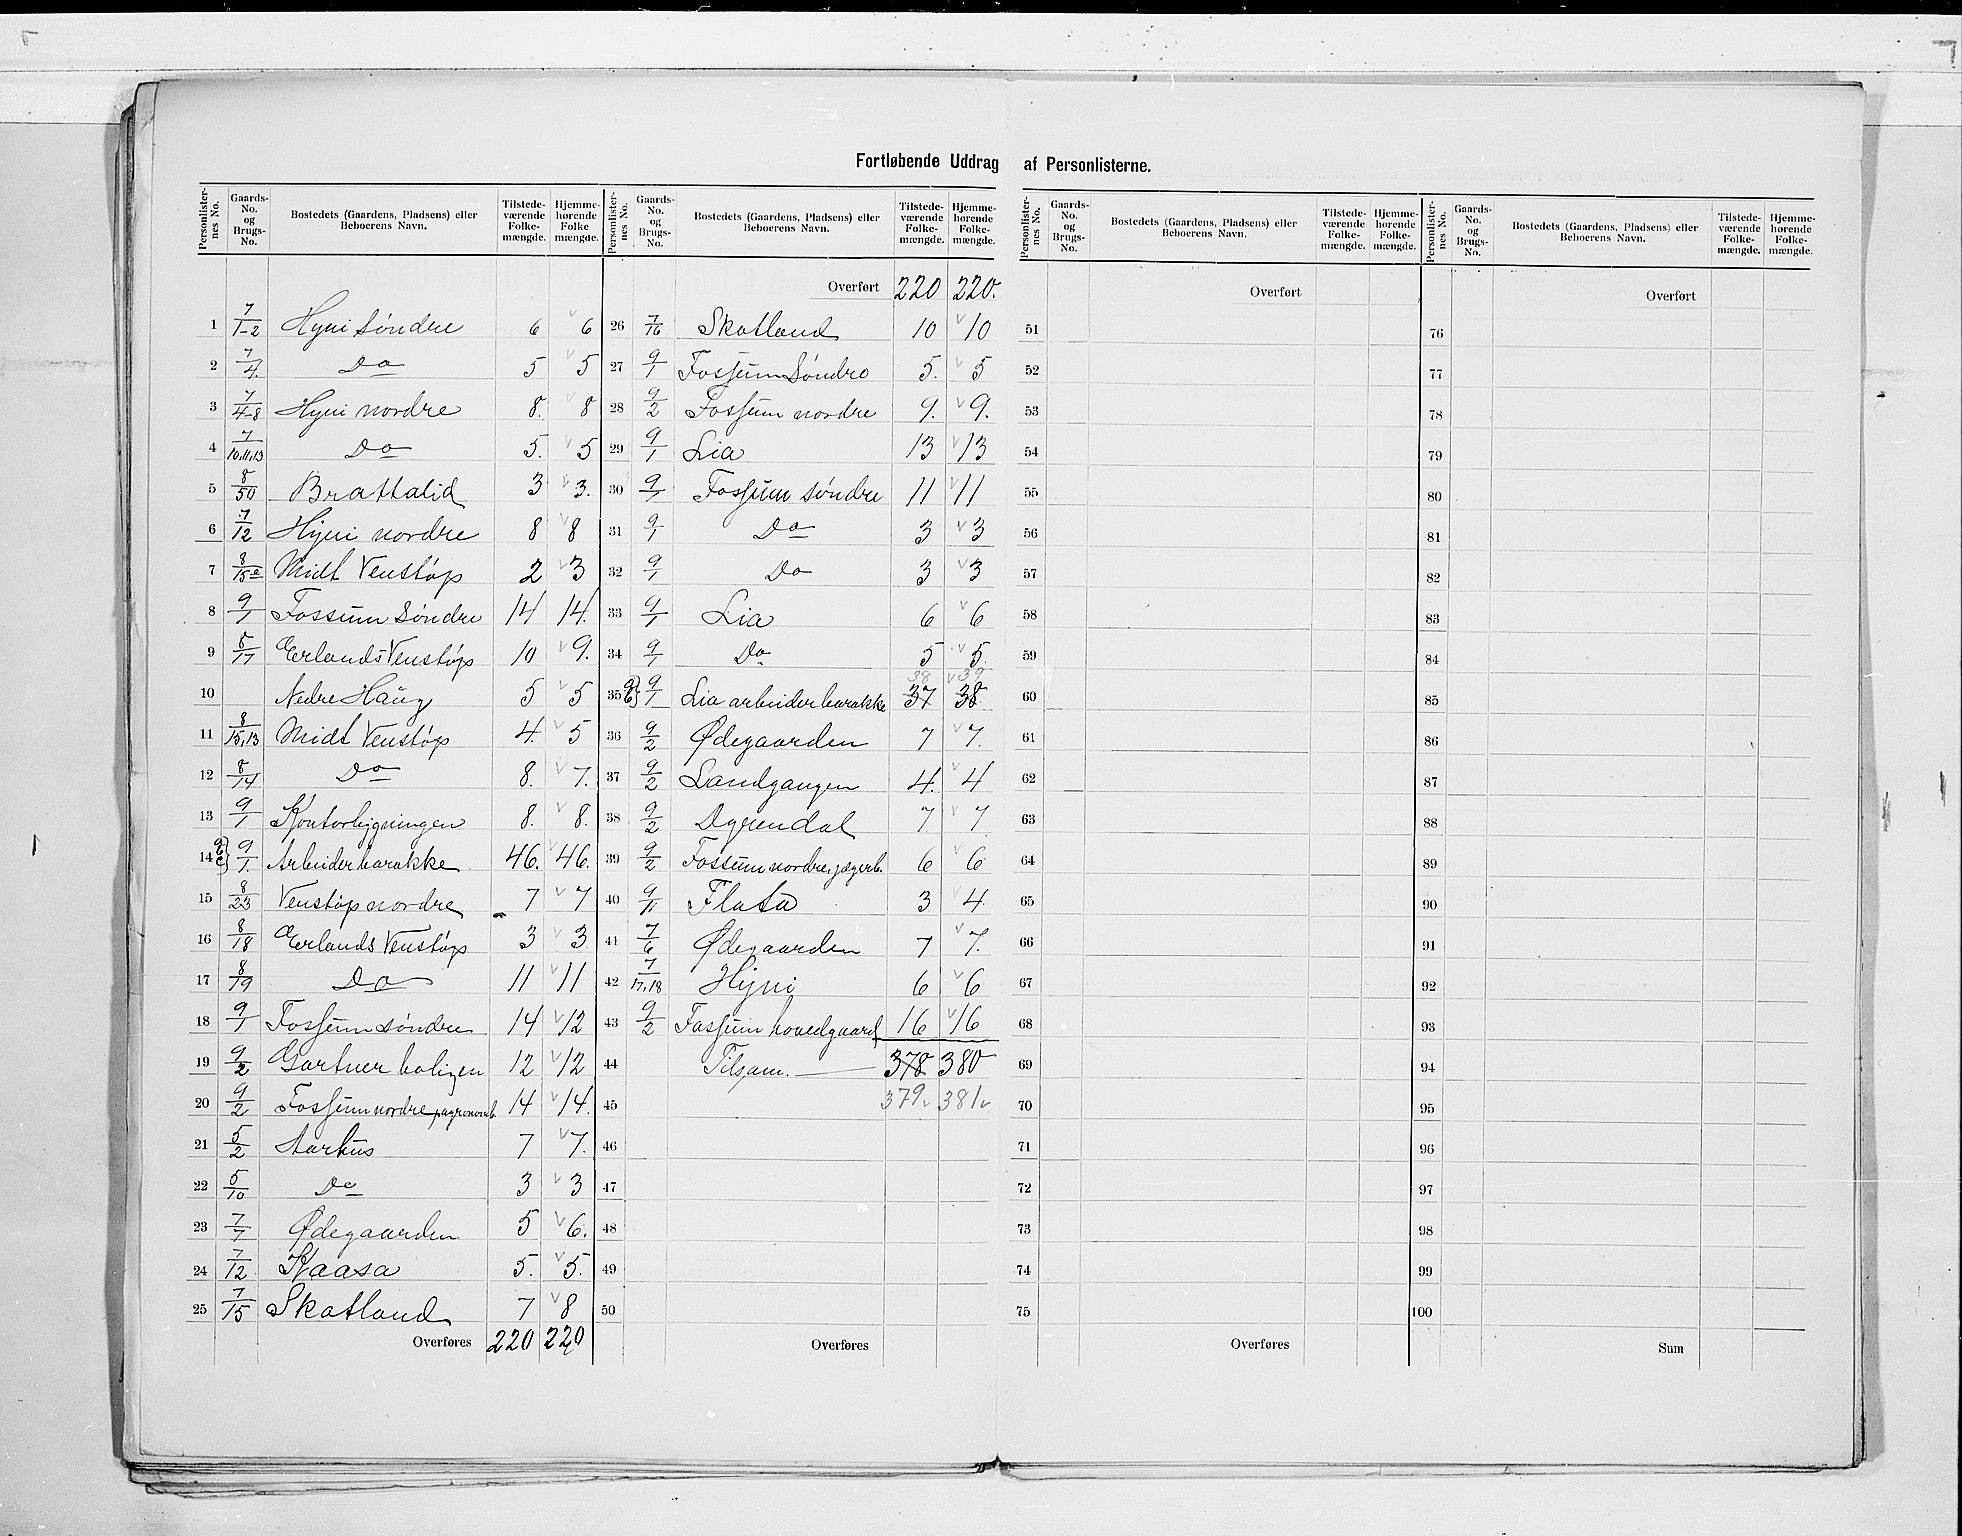 Fortløbende Uddrag af Personlisterne.
Personlisternes No. Gaards-No. og Brugs-No. Bostedets (Gaardens, Pladsens) eller Beboerens Navn. Tilstedeværende Folkemængde. Hjemmehørende Folkemængde.
1 7/1-2 Hyni søndre 6 6
2 7/4 Do 5 5
3 7/4-8 Hyni nordre 8. 8
4 7/10,11,13 Do 5. 5
5 8/50 Brattalid 3 3.
6 7/12 Hyni nordre 8 8
7 8/15e Midt Venstøp 2 3
8 9/1 Fossum Søndre 14 14.
9 8/17 Erlands Venstøp 10 9.
10 Nedre Haug 5 5
11 8/15,13 Midt Venstøp 4. 5
12 8/14 Do 8. 7.
13 9/1 Kontorbygningen 8. 8.
14 9/1 Arbeiderbarakke 46. 46.
15 8/23 Venstøp nordre 7 7
16 8/18 Erlands Venstøp 3 3
17 8/19 Do 11 11
18 9/1 Fossum søndre 14 12
19 9/2 Gartnerboligen 12 12
20 9/2 Fossum nordre, agronomb. 14 14.
21 5/2 Aarhus 7 7.
22 5/10 Do 3 3
23 7/7 Ødegaarden 5 6.
24 7/12 Kaasa 5. 5.
25 7/15 Skotland 7 8
Overføres 220 220
Personlisternes No. Gaards-No. og Brugs-No. Bostedets (Gaardens, Pladsens) eller Beboerens Navn. Tilstedeværende Folkemængde. Hjemmehørende Folkemængde.
Overført 220 220.
26 7/16 Skotland 10 10
27 9/1 Fossum Søndre 5. 5
28 9/2 Fossum nordre 9. 9.
29 9/1 Lia 13 13
30 9/1 Fossum søndre 11 11
31 9/1 Do 3 3
32 9/1 Do 3 3
33 9/1 Lia 6 6
34 9/1 Do 5 5.
38 39
35 9/1 Lia arbeiderbarakke 37 38
36 9/2 Ødegaarden 7 7.
37 9/2 Landgangen 4. 4
38 9/2 Dyrendal 7. 7.
39 9/2 Fossum nordre, jægerb. 6 6
40 9/11 Flata 3 4.
41 7/6 Ødegaarden 7 7.
42 7/17,18 Hyni 6 6
43 9/2 Fossum hovedgaard 16 16
44 Tilsam. 378 380
45 379 381
46
47
48
49
50
Overføres
Personlisternes No. Gaards-No. og Brugs-No. Bostedets (Gaardens, Pladsens) eller Beboerens Navn. Tilstedeværende Folkemængde. Hjemmehørende Folkemængde.
Overført
51
52
53
54
55
56
57
58
59
60
61
62
63
64
65
66
67
68
69
70
71
72
73
74
75
Overføres
Personlisternes No. Gaards-No. og Brugs-No. Bostedets (Gaardens, Pladsens) eller Beboerens Navn. Tilstedeværende Folkemængde. Hjemmehørende Folkemængde.
Overført
76
77
78
79
80
81
82
83
84
85
86
87
88
89
90
91
92
93
94
95
96
97
98
99
100
Sum